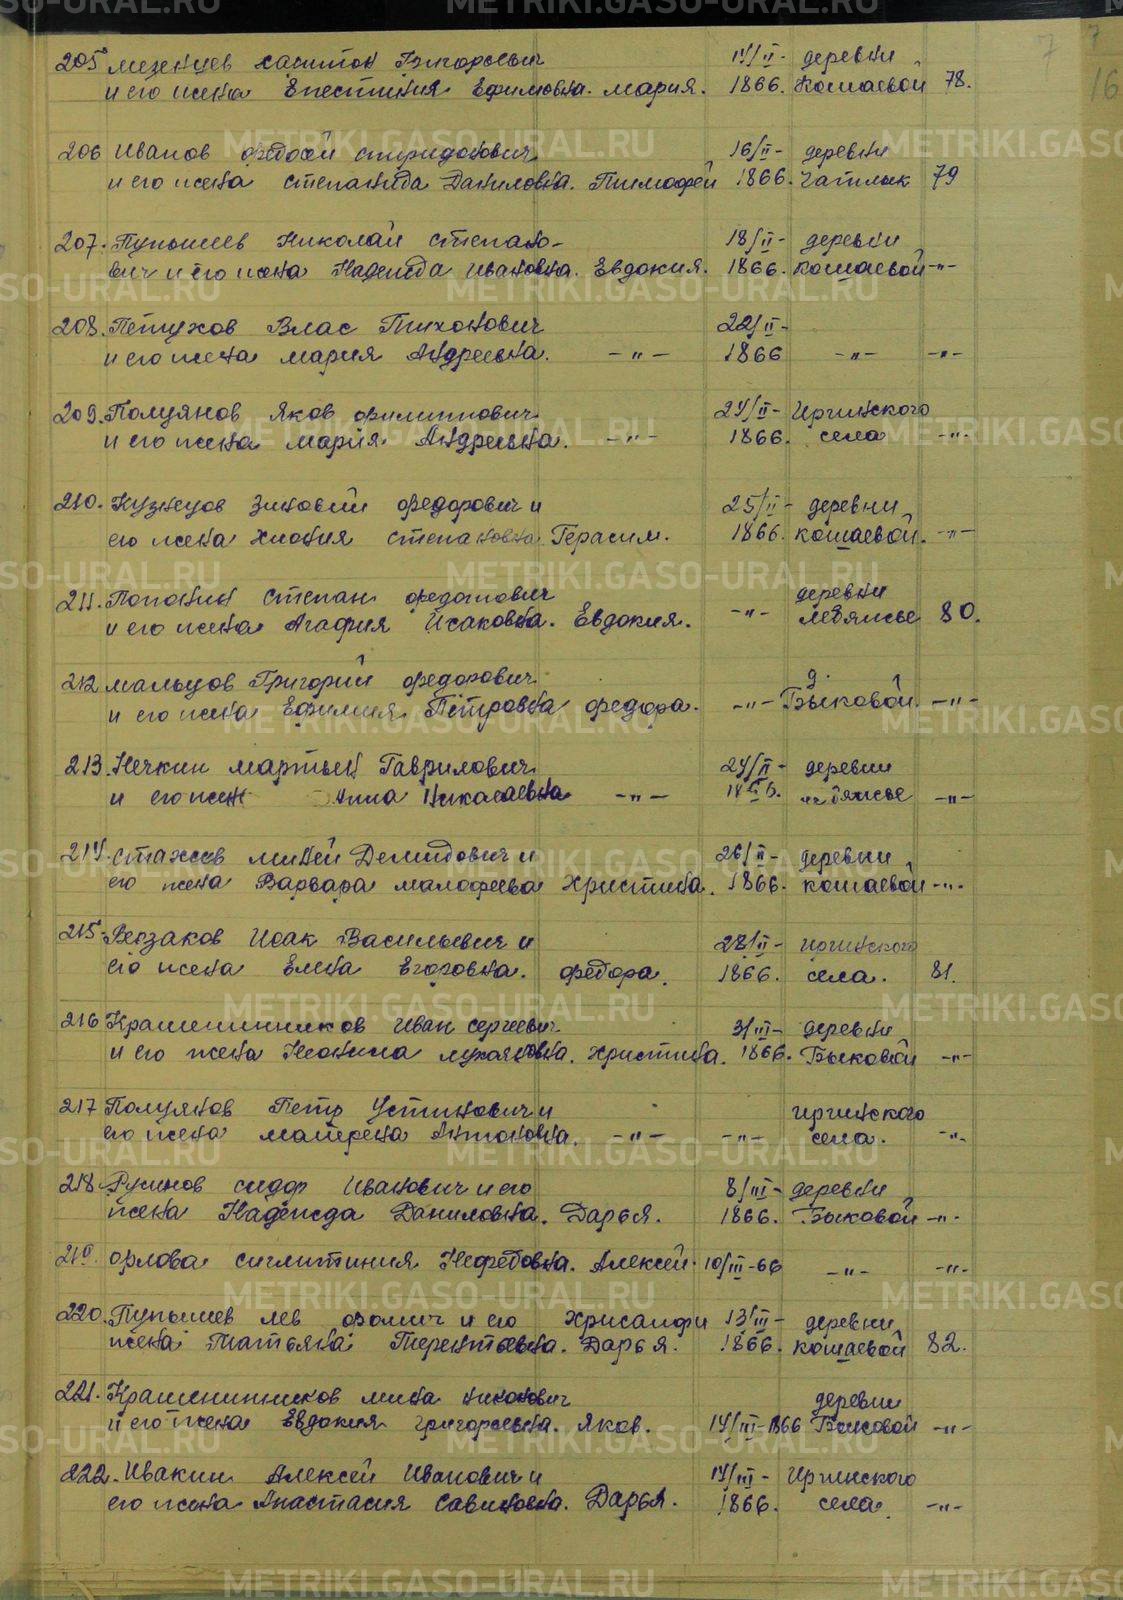 7 7
16
205 Мезенцев Харитон Григорьевич 14/II- деревни
и его жена Епестиния Ефимовна. Мария. 1866. Кошаевой 78.
206 Иванов Федосей Спиридонович 16/II- деревни
и его жена Степанида Даниловна. Тимофей 1866. Чатлык 79
207. Пупышев Николай Степано- 18/II- деревни
вич и его жена Надежда Ивановна. Евдокия. 1866. Кошаевой -"-
208. Петухов Влас Тихонович 22/II-
и его жена Мария Андреевна. -"- 1866 -"- -"-
209. Полуянов Яков Филиппович 24/II- Иргинского
и его жена Мария Андреевна. -"- 1866. села -"-
210. Кузнецов Зиновий Федорович и 25/II- деревни
его жена Хиония Степановна. Герасим. 1866. Кошаевой. -"-
211. Попонин Степан Федотович деревни
и его жена Агафия Исаковна. Евдокия. -"- Лебяжье 80.
212 Мальцов Григорий Федорович д.
и его жена Ефимия Петровна Федора. -"- Быковой. -"-
213. Нечкин Мартын Гаврилович 24/II- деревни
и его жен Анна Николаевна -"- -"-
214. Стахеев Михей Демидович и 26/II- деревни
его жена Варвара Малофеева Христина. 1866. Кошаевой -"-
215. Рюзаков Исак Васильевич и 28/II- Иргинского
его жена Елена Егоровна. Федора. 1866. села. 81.
216 Крашенинников Иван Сергеевич 3/III- деревни
и его жена Неонила Лукояновна. Христина. 1866. Быковой -"-
217 Полуянов Петр Устинович и Иргинского
его жена Матрена Антоновна. -"- -"- села. -"-
218. Русинов Сидор Иванович и его 8/III- деревни
жена Надежда Даниловна. Дарья. 1866. Быковой -"-
219. Орлова Сиглитиния Нефедовна. Алексей. 10/III-66 -"- -"-
220. Пупышев Лев Фомич и его Хрисанф и 13/III- деревни
жена Татьяна Терентьевна. Дарья. 1866. Кошаевой 82.
221. Крашенинников Мина Никонович деревни
и его жена Евдокия Григорьевна. Яков. 14/III-1866 Быковой -"-
222. Ивакин Алексей Иванович и 14/III- Иргинского
его жена Анастасия Савиновна. Дарья. 1866. села. -"-
METRIKI.GASO-URAL.RU